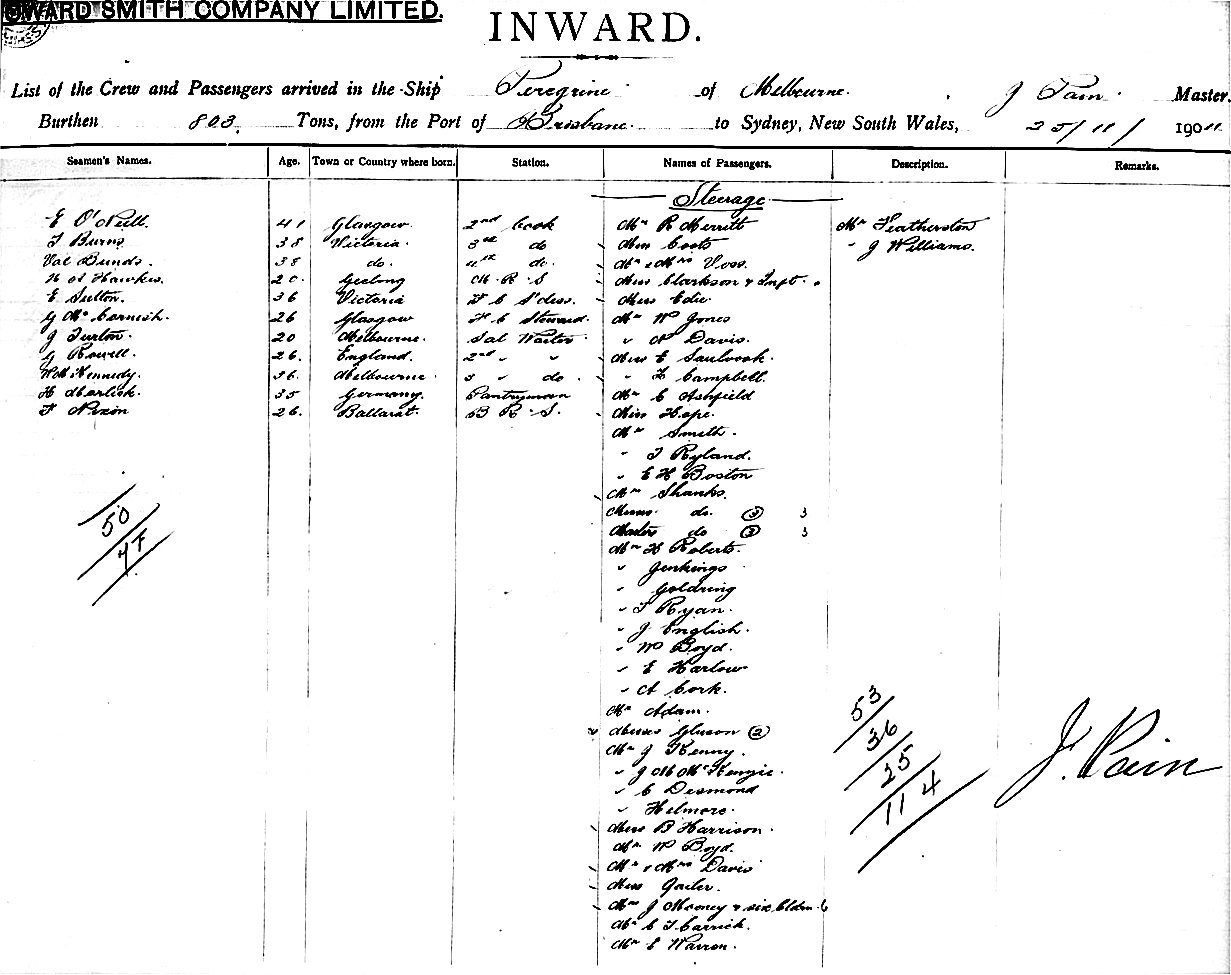 WARD SMITH COMPANY LIMITED.
INWARD.
List of the Crew and Passengers arrived in the Ship Peregrine of Melbourne. J Pain Master,
Burthen 803 Tons, from the Port of Brisbane to Sydney, New South Wales, 25/11/1901.
Seamen's Names. Age. Town or Country where born. Station. Names of Passengers. Description. Remarks.
Steerage
E O'Neill. 41 Glasgow 2nd Cook Mr R Merritt Mr Featherston
T Burns 38 Victoria. 3rd do Miss Coots " J Williams.
Val Bunds. 38 do. 4th do. Mr & Mrs Voss.
Hawkes. 20. Geelong M. R. S Miss Clarkson & Inft.
E Sutton. 36 Victoria F C S'dess. Miss Edie
G McCarnish. 26 Glasgow F C Steward. Mr W Jones
J Turton. 20 Melbourne. Sal Waiter " N Davis.
G Rowell. 26. England. 2nd " " Miss E
Kennedy. 36. Melbourne. 3 " do. " F Campbell.
H 35 Germany. Pantryman Mr C Ashfield
F Nixon 26. Ballarat. B. R. S. Miss Hope.
Mr Smith.
" T Ryland.
" E H Boston
Mrs Shanks.
Misses do. 3 3
Masters do 3 3
Mr H Roberts.
" Jenkings
" Goldring
" T Ryan.
" J English.
" W Boyd.
" E Harlow
" A Cork.
Mr Adam.
Misses Gluson 2
Mr J Kenny.
" J M McKenzie.
" C Desmond
" Helmore.
Miss B Harrison.
Mr W Boyd.
Mr & Mrs Davis
Miss
Mrs J Mooney & six Cldrn. 6
Mr C T Carrick.
Mr E Warron.
50
47
53
36
25
114
J. Pain